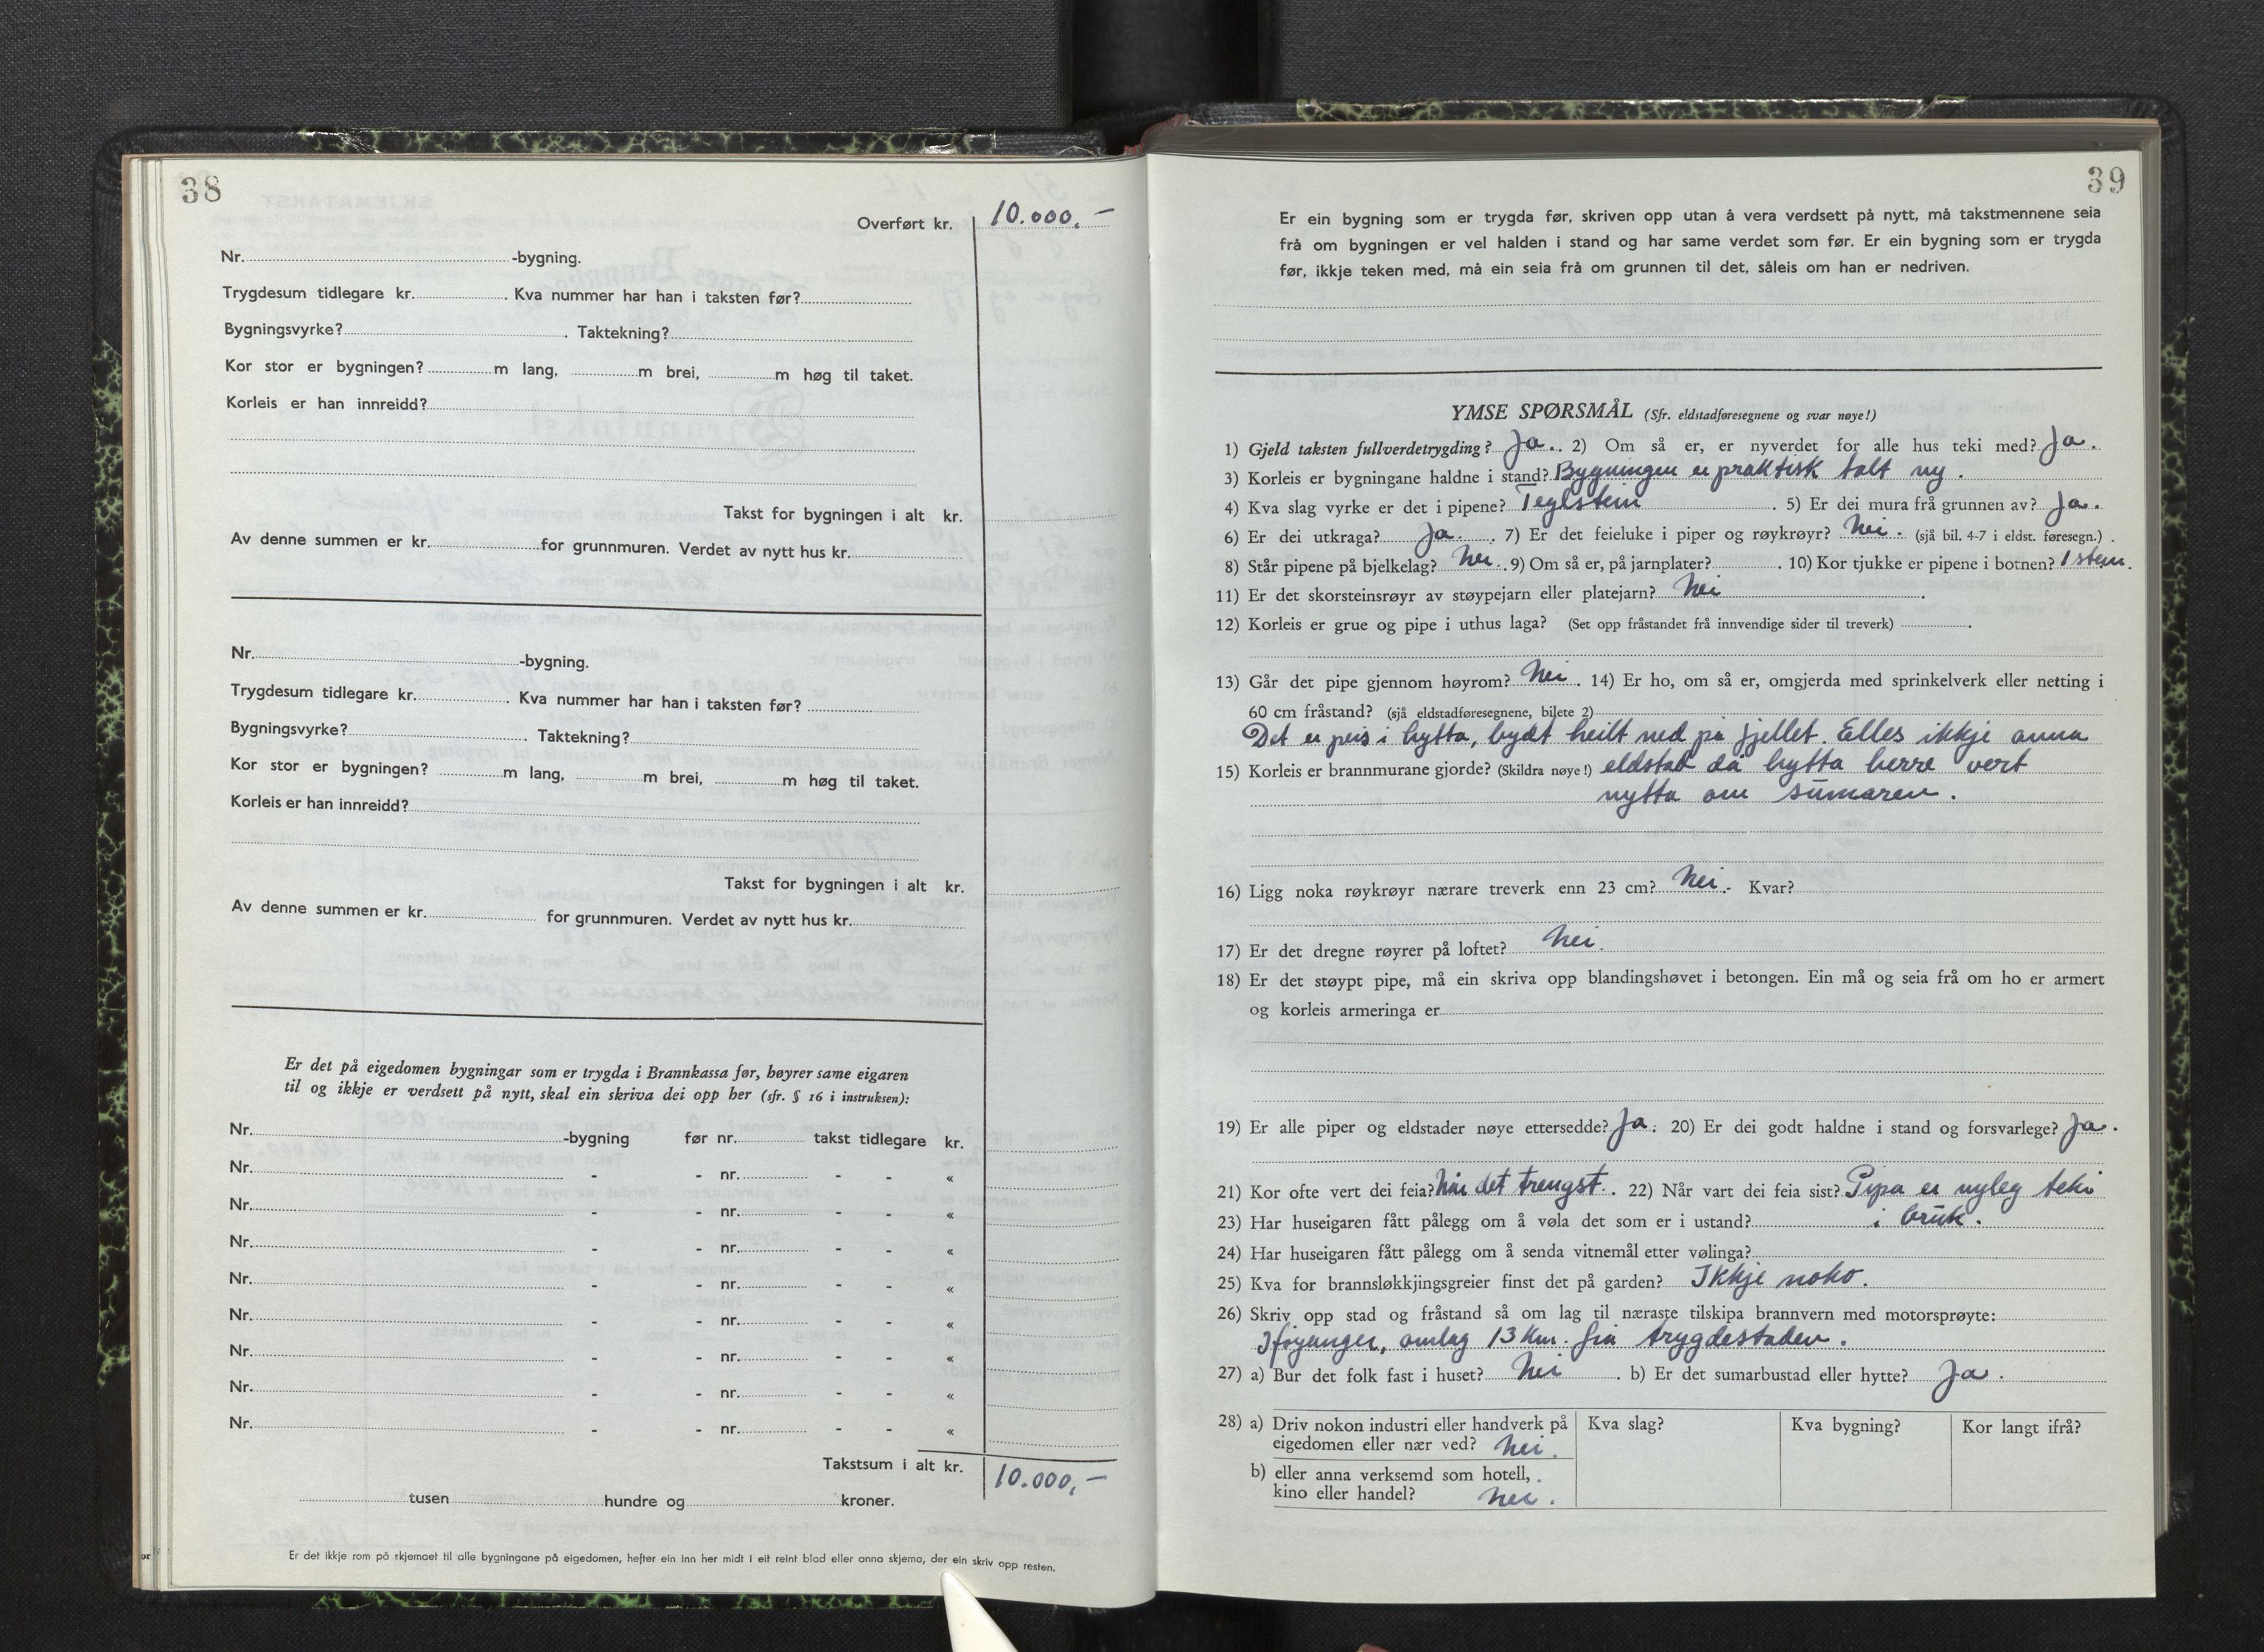 38
Overført kr. 10.000,-
Nr. -bygning.
Trygdesum tidlegare kr. . Kva nummer har han i taksten før?
Bygningsvyrke? . Taktekning?
Kor stor er bygningen? m lang, m brei, m høg til taket.
Korleis er han innreidd?
Takst for bygningen i alt kr.
Av denne summen er kr. for grunnmuren. Verdet av nytt hus kr.
Nr. -bygning.
Trygdesum tidlegare kr. . Kva nummer har han i taksten før?
Bygningsvyrke? . Taktekning?
Kor stor er bygningen? m lang, m brei, m høg til taket.
Korleis er han innreidd?
Takst for bygningen i alt kr.
Av denne summen er kr. for grunnmuren. Verdet av nytt hus kr.
Er det på eigedomen bygningar som er trygda i Brannkassa før, høyrer same eigaren
til og ikkje er verdsett på nytt, skal ein skriva dei opp her (sfr. § 16 i instruksen):
Nr. -bygning før nr. takst tidlegare kr.
Nr. - - nr. - - «
Nr. - - nr. - - «
Nr. - - nr. - - «
Nr. - - nr. - - «
Nr. - - nr. - - «
Nr. - - nr. - - «
Nr. - - nr. - - «
Nr. - - nr. - - «
Takstsum i alt kr. 10.000,-
tusen hundre og kroner.
Er det ikkje rom på skjemaet til alle bygningane på eigedomen, hefter ein inn her midt i eit reint blad eller anna skjema, der ein skriv opp resten.
39
Er ein bygning som er trygda før, skriven opp utan å vera verdsett på nytt, må takstmennene seia
frå om bygningen er vel halden i stand og har same verdet som før. Er ein bygning som er trygda
før, ikkje teken med, må ein seia frå om grunnen til det, såleis om han er nedriven.
YMSE SPØRSMÅL (Sfr. eldstadføresegnene og svar nøye!)
1) Gjeld taksten fullverdetrygding? Ja. 2) Om så er, er nyverdet for alle hus teki med? Ja.
3) Korleis er bygningane haldne i stand? Bygningen er praktisk talt ny.
4) Kva slag vyrke er det i pipene? Teglstein . 5) Er dei mura frå grunnen av? Ja.
6) Er dei utkraga? Ja. 7) Er det feieluke i piper og røykrøyr? Nei. (sjå bil. 4-7 i eldst. føresegn.) .
8) Står pipene på bjelkelag? Nei. 9) Om så er, på jarnplater? . 10) Kor tjukke er pipene i botnen? 1 stein.
11) Er det skorsteinsrøyr av støypejarn eller platejarn? Nei .
12) Korleis er grue og pipe i uthus laga? (Set opp fråstandet frå innvendige sider til treverk) .
13) Går det pipe gjennom høyrom? Nei. 14) Er ho, om så er, omgjerda med sprinkelverk eller netting i
60 cm fråstand? (sjå eldstadføresegnene, bilete 2)
Det er peis i hytta, bygt heilt ned på fjellet. Elles ikkje anna
15) Korleis er brannmurane gjorde? (Skildra nøye!) eldstad då hytta berre vert
nytta om sumaren.
16) Ligg noka røykrøyr nærare treverk enn 23 cm? Nei. - Kvar?
17) Er det dregne røyrer på loftet? Nei.
18) Er det støypt pipe, må ein skriva opp blandingshøvet i betongen. Ein må og seia frå om ho er armert
og korleis armeringa er
19) Er alle piper og eldstader nøye ettersedde? Ja. 20) Er dei godt haldne i stand og forsvarlege? Ja.
21) Kor ofte vert dei feia? Når det trengst. 22) Når vart dei feia sist? Pipa er nyleg teki
23) Har huseigaren fått pålegg om å vøla det som er i ustand? i bruk.
24) Har huseigaren fått pålegg om å senda vitnemål etter vølinga?
25) Kva for brannsløkkjingsgreier finst det på garden? Ikkje noko.
26) Skriv opp stad og fråstand så om lag til næraste tilskipa brannvern med motorsprøyte:
omlag 13 km. frå trygdestaden.
27) a) Bur det folk fast i huset? Nei . b) Er det sumarbustad eller hytte? Ja.
28) a) Driv nokon industri eller handverk på eigedomen eller nær ved? Nei. Kva slag? Kva bygning? Kor langt ifrå?
b) eller anna verksemd som hotell,
kino eller handel? Nei.